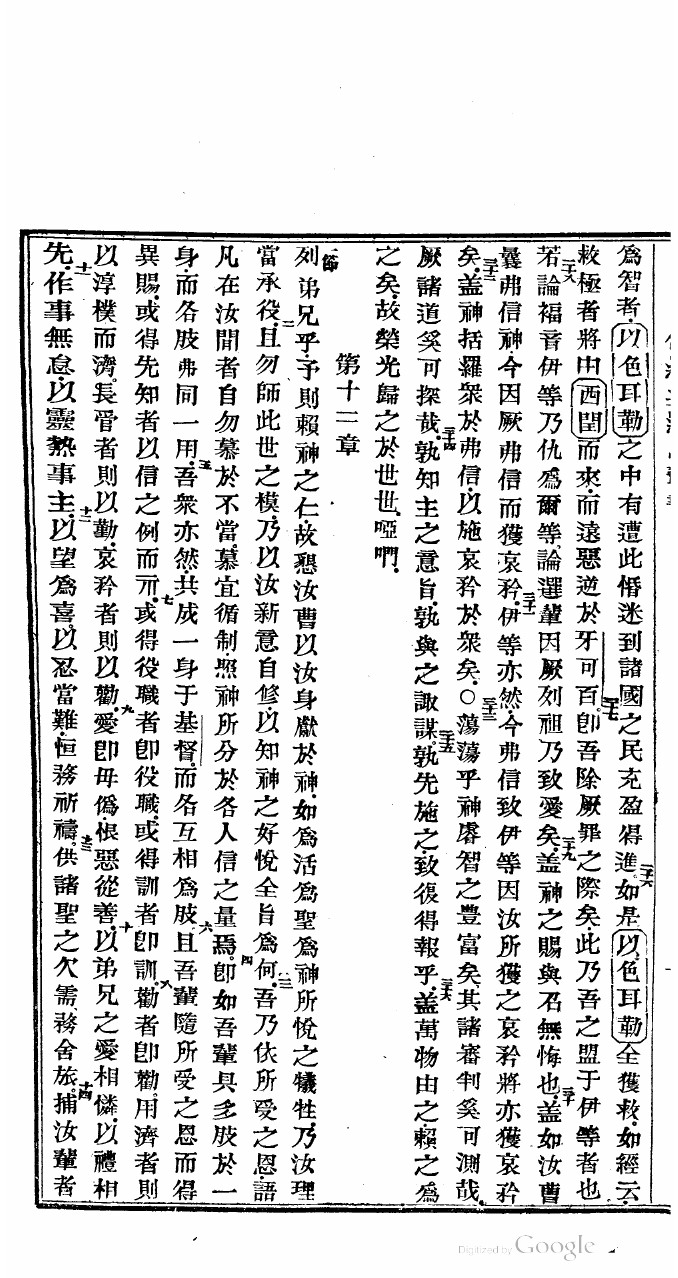 為智者以色耳勒之中有遭此惛迷到諸國之民充盈得進二十六如是以色耳勒全獲救如經云
救極者將由西閏而來而遠惡逆於牙可百二十七卽吾除厥罪之際矣此乃吾之盟于伊等者也
二十八若論福音伊等乃仇為爾等論選輩因厥列祖乃致愛矣二十九盖神之賜與召無悔也三十盖如汝曹
曩弗信神今因厥弗信而獲哀矜三十一伊等亦然今弗信致伊等因汝所獲之哀矜將亦獲哀矜
矣三十二盖神括羅眾於弗信以施哀矜於眾矣〇三十三蕩蕩乎神睿智之豐富矣其諸審判奚可測哉
厥諸道奚可探哉三十四孰知主之意旨孰與之諏謀三十五孰先施之致復得報乎三十六盖萬物由之賴之為
之矣故榮光歸之於世世啞們
第十二章
一節列弟兄乎予則賴神之仁故懇汝曹以汝身獻於神如為活為聖為神所悅之犧牲乃汝理
當承役二且勿師此世之模乃以汝新意自修以知神之好悅全旨為何三吾乃依所受之恩語
凡在汝間者自勿慕於不當慕宜循制照神所分於各人信之量焉四卽如吾輩具多肢於一
身而各肢弗同一用五吾眾亦然共成一身于基督而各互相為肢六且吾輩隨所受之恩而得
異賜或得先知者以信之例而示七或得役職者卽役職或得訓者卽訓八勸者卽勸用濟者則
以淳樸而濟長管者則以勤哀矜者則以勸九愛卽毋偽恨惡從善十以弟兄之愛相憐以禮相
先十一作事無怠以靈熱事主十二以望為喜以忍當難恒務祈禱十三供諸聖之欠需務舍旅十四捕汝輩者
Digitized by Google